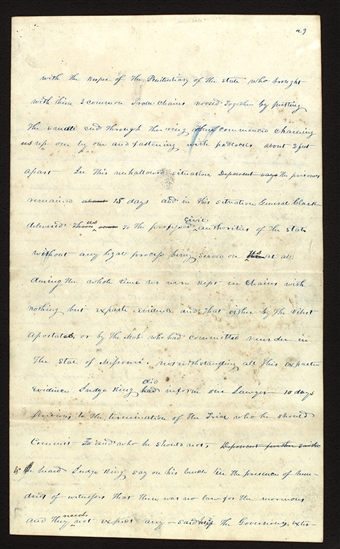 29
with the keeper of the Penitentiary of the state who brought
with him 3 common Trace Chains noosed together by putting
the small end through the ring, & commenced chaining
us up one by one and fastening with padlocks about 2 feet
apart In this unhallowed situation Deponent says the prisoners
remained 15 days and in this situation General Clark
delivered us to the professed civil authorities of the state
without any legal process being served on us at all
during the whole time we were kept in chains with
nothing but exparte evidence and that either by the vilest
apostates or by the mob who had committed murder in
The State of Missouri. notwithstanding all this exparte
evidence Judge King did inform our Lawyer 10 days
previous to the termination of the Trial who he should
Commit To and who he should not, Deponent further saith
& heard Judge King say on his bench in the presence of hun
dreds of witnesses that there was no law for the mormons
and they need not expect any - said he if the Governors exter